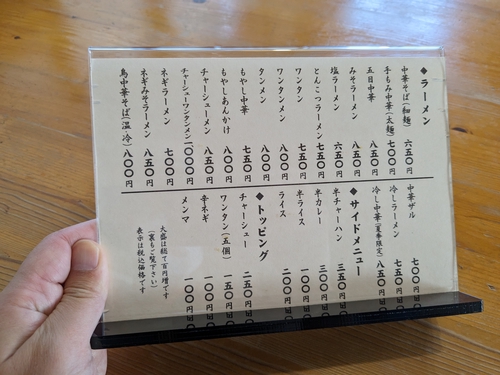 ◆ラーメン
中華そば(細麺) 六五〇円
手もみ中華(太麺)
五目中華 八五〇円
みそラーメン
塩ラーメン 六五〇円
とんこつラーメン 七五〇円
ワンタン 七五〇円
ワンタンメン 八〇〇円
タンメン 八〇〇円
もやし中華 七五〇円
もやしあんかけ 八〇〇円
チャーシューメン 八五〇円
チャーシューワンタンメン 一〇〇〇円
ネギラーメン 七〇〇円
ネギみそラーメン 八五〇円
鳥中華そば(温 冷) 八〇〇円
中華ザル 七〇〇円
冷しラーメン 七五〇円
冷し中華(夏季限定) 八五〇円
◆サイドメニュー
半チャーハン 三五〇円
半カレー 三〇〇円
半ライス 一〇〇円
ライス 二〇〇円
◆トッピング
チャーシュー 二五〇円
ワンタン(五個) 一五〇円
辛ネギ 一〇〇円
メンマ 一〇〇円
大盛は総て百円増です
(裏もご覧下さい)
表示は税込価格です